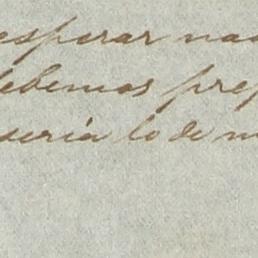 esperar na
debemos pre
seria lo de m